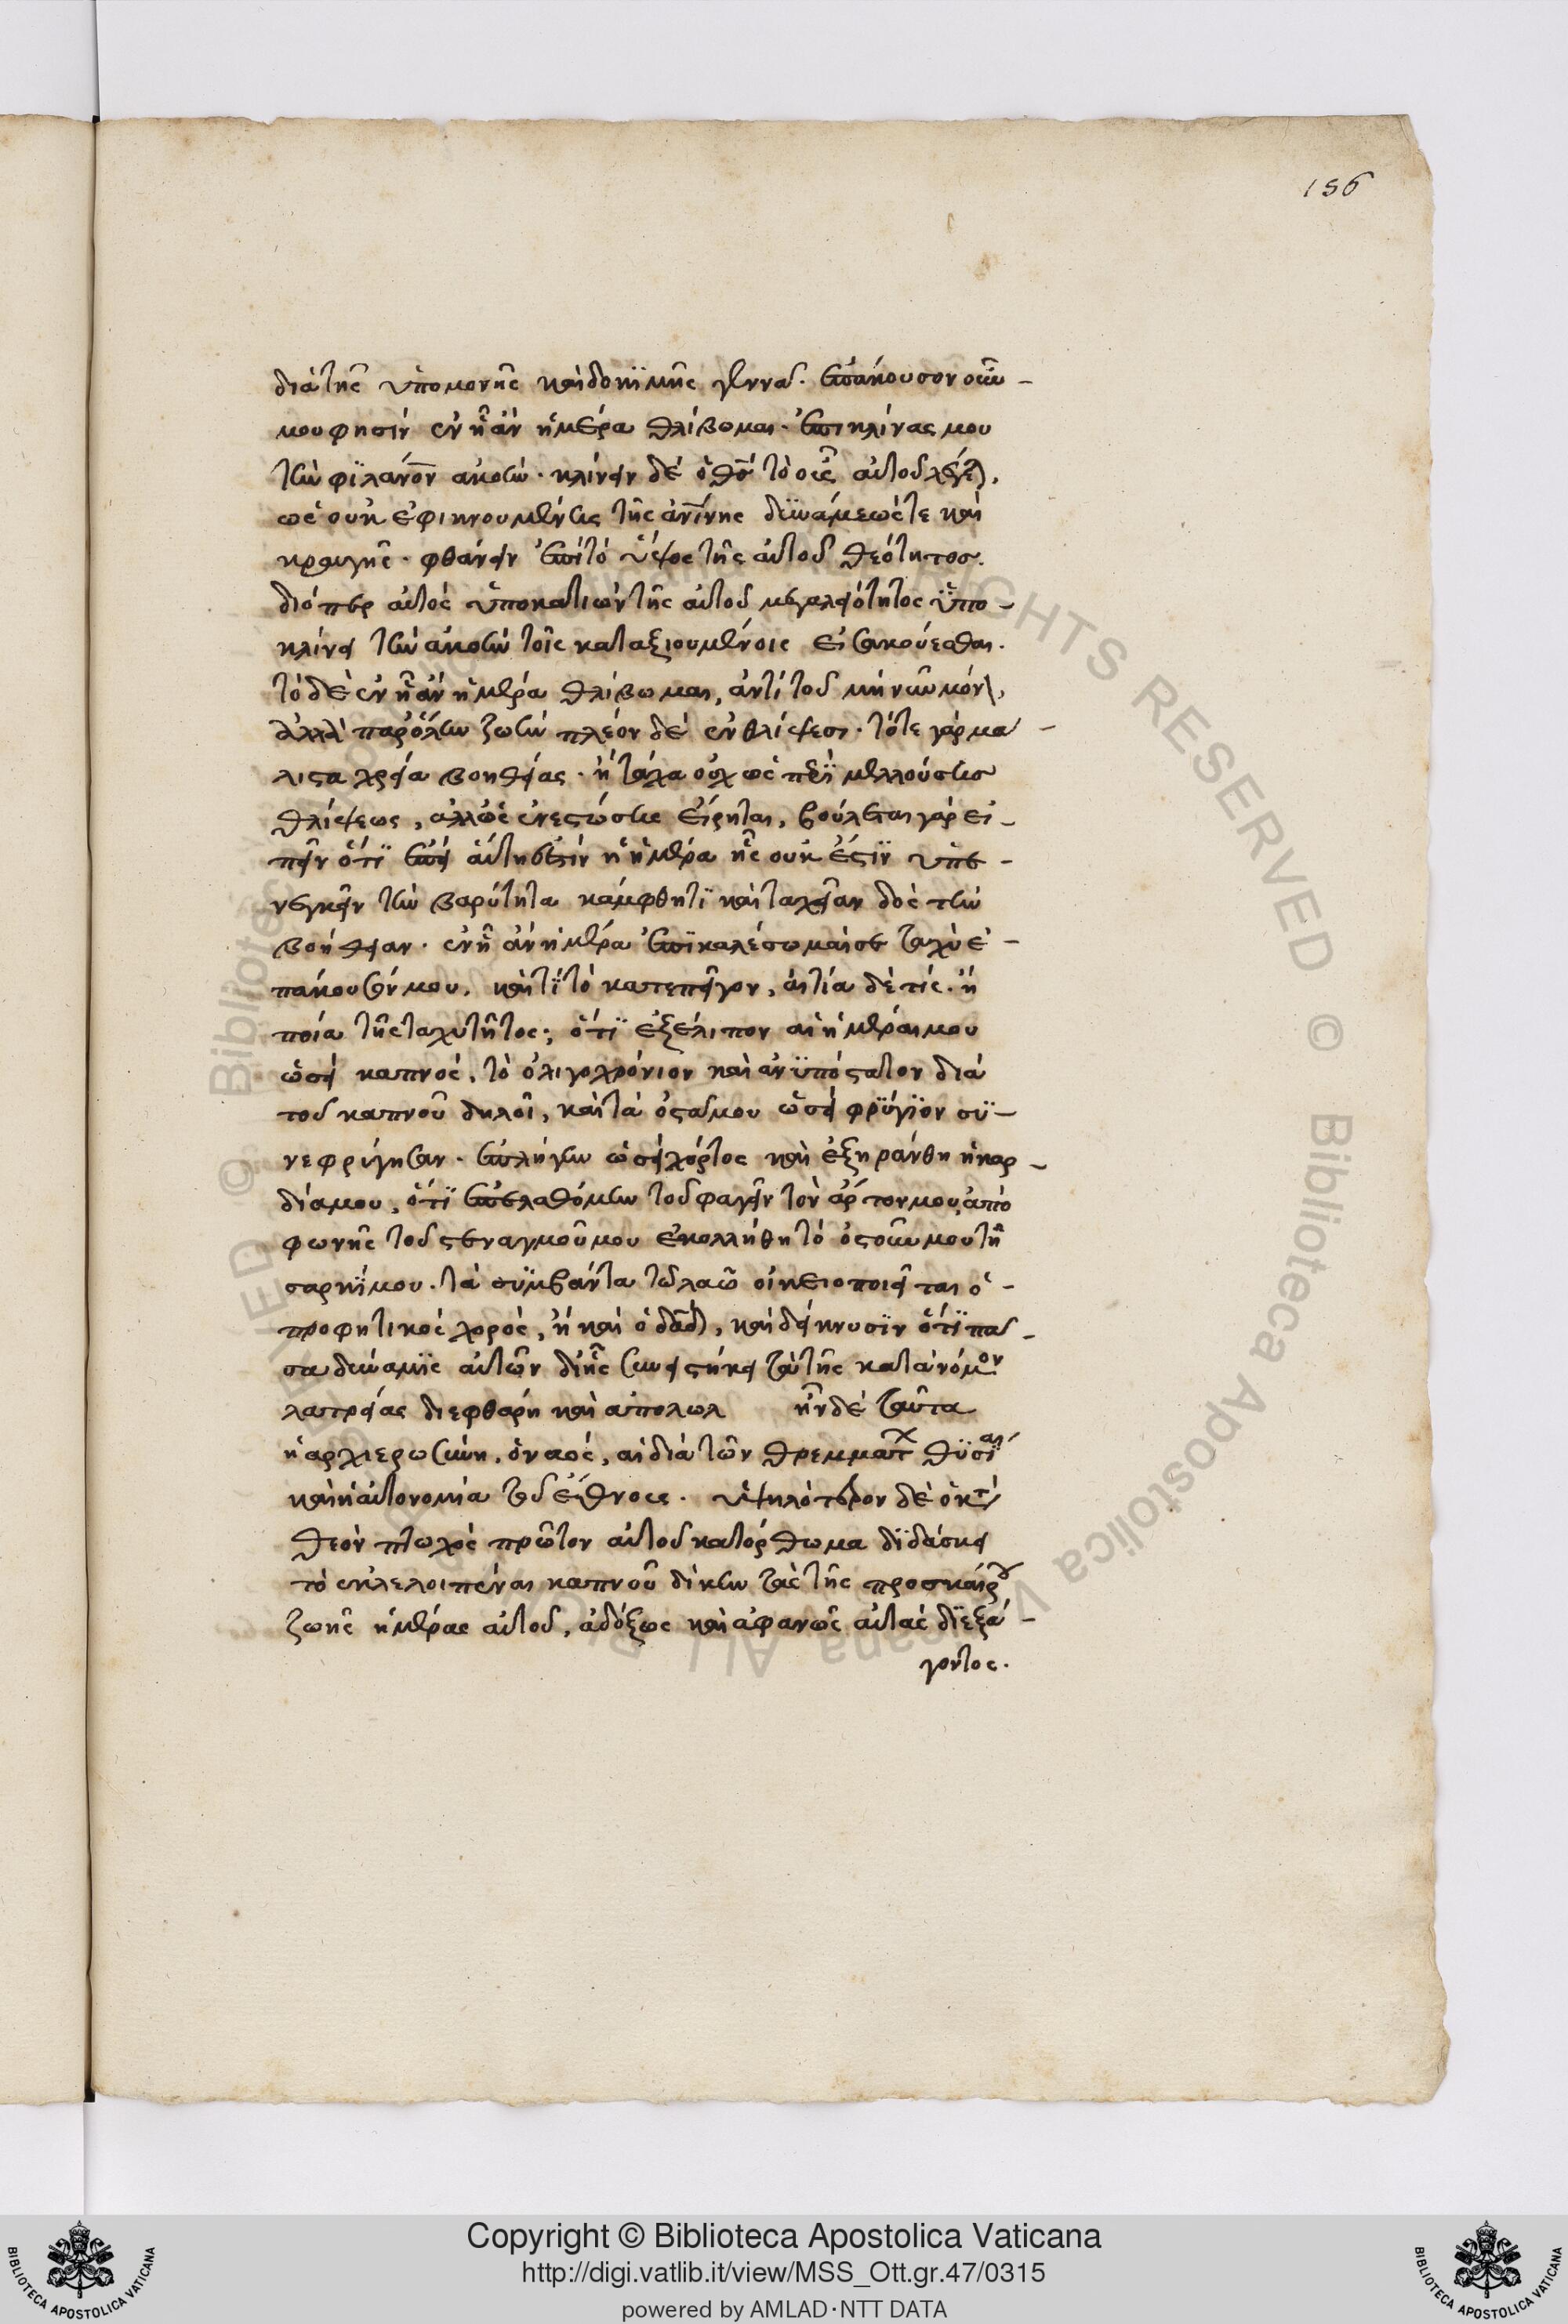 156
διὰ τῆς ὑπομονῆς καὶ δοκϊμῆς γεννᾶ. ἐπάκουσον οὖν
μου φησίν ἐν ᾗ ἂν ἡμέρα θλίβομαι. ἐπικλίνας μου
τὴν φϊλάνον ἀκοήν. κλίνειν δὲ ὁ θς τὸ οὖς αὐτοῦ λέγεται,
ὡς οὐκ ἐφικνουμένης τῆς ἀνίνης δϋνάμεώς τε καὶ
κραυγῆς. φθάνειν ἐπὶ τὸ ὕψος τῆς αὐτοῦ θεότητος.
διόπερ αὐτὸς ὑποκατιὼν τῆς αὐτοῦ μεγαλειότητος ὑπο
κλίνει τὴν ἀκοὴν τοῖς καταξιουμένοις εἰσακούεσθαι.
τὸ δὲ ἐν ᾗ ἂν ἡμέρα θλίβωμαι, ἀντὶ τοῦ μὴ νῦν μόνον,
ἀλλὰ παρ' ὅλην ζωὴν πλέον δὲ ἐν θλίψεσι. τότε γὰρ μά
λιστα χρεία βοηθείας. ἢ τάχα οὐχ ὡς περὶ μελλούσης
θλίψεως, ἀλλ' ὡς ἐνεστώσης εἴρηται, βούλεται γὰρ εἰ
πεῖν ὅτϊ ἐπεὶ αὕτη ἐστὶν ἡ ἡμέρα ἧς οὐκ ἔστϊ ὑπε
νεγκεῖν τὴν βαρύτητα κάμφθητϊ καὶ ταχεῖαν δὸς τὴν
βοήθειαν. ἐν ᾗ ἂν ἡμέρα ἐπϊκαλέσωμαί σε ταχὺ ἐ
πάκουσόν μου. καὶ τί τὸ κατεπεῖγον, αἰτία δὲ τίς. ἢ
ποία τῆς ταχυτῆτος; ὅτϊ ἐξέλιπον αἱ ἡμέραι μου
ὡσεὶ καπνός. τὸ ὀλιγοχρόνιον καὶ ἀνϋπόστατον διὰ
τοῦ καπνοῦ δηλοῖ, καὶ τὰ ὀστᾶ μου ὡσεὶ φρϋγϊον σϋ
νεφρύγησαν. ἐπλήγην ὡσεὶ χόρτος καὶ ἐξηράνθη ἡ καρ
δία μου, ὅτϊ ἐπελαθόμην τοῦ φαγεῖν τὸν ἄρτον μου, ἀπὸ
φωνῆς τοῦ στεναγμοῦ μου ἐκολλήθη τὸ ὀστοῦν μου τῇ
σαρκϊ μου. τὰ σϋμβάντα τῷ λαῷ οἰκειοποιεῖται ὁ
προφητικὸς χορός, ἢ καὶ ὁ δαδ, καὶ δείκνυσϊν ὅτϊ πᾶ
σα δύναμϊς αὐτῶν δι' ἧς συνεστήκει τὰ τῆς κατὰ νόμον
λατρείας διεφθάρη καὶ ἀπολωλ ἦν δὲ ταῦτα
ἡ ἀρχιερωσύνη, ὁ ναός, αἱ διὰ τῶν θρεμματ θϋσίαι
καὶ ἡ αὐτονομία τοῦ ἔθνους. ὑψηλότερον δὲ ὁ κτ
θεὸν πτωχὸς πρῶτον αὐτοῦ κατόρθωμα δϊδάσκει
τὸ ἐκλελοιπέναι καπνοῦ δίκην τὰς τῆς προσκαίρου
ζωῆς ἡμέρας αὐτοῦ, ἀδόξως καὶ ἀφανῶς αὐτὰς δϊεξά
γοντος.
Copyright © Biblioteca Apostolica Vaticana
http://digi.vatlib.it/view/MSS_Ott.gr.47/0315
powered by AMLAD·NTT DATA